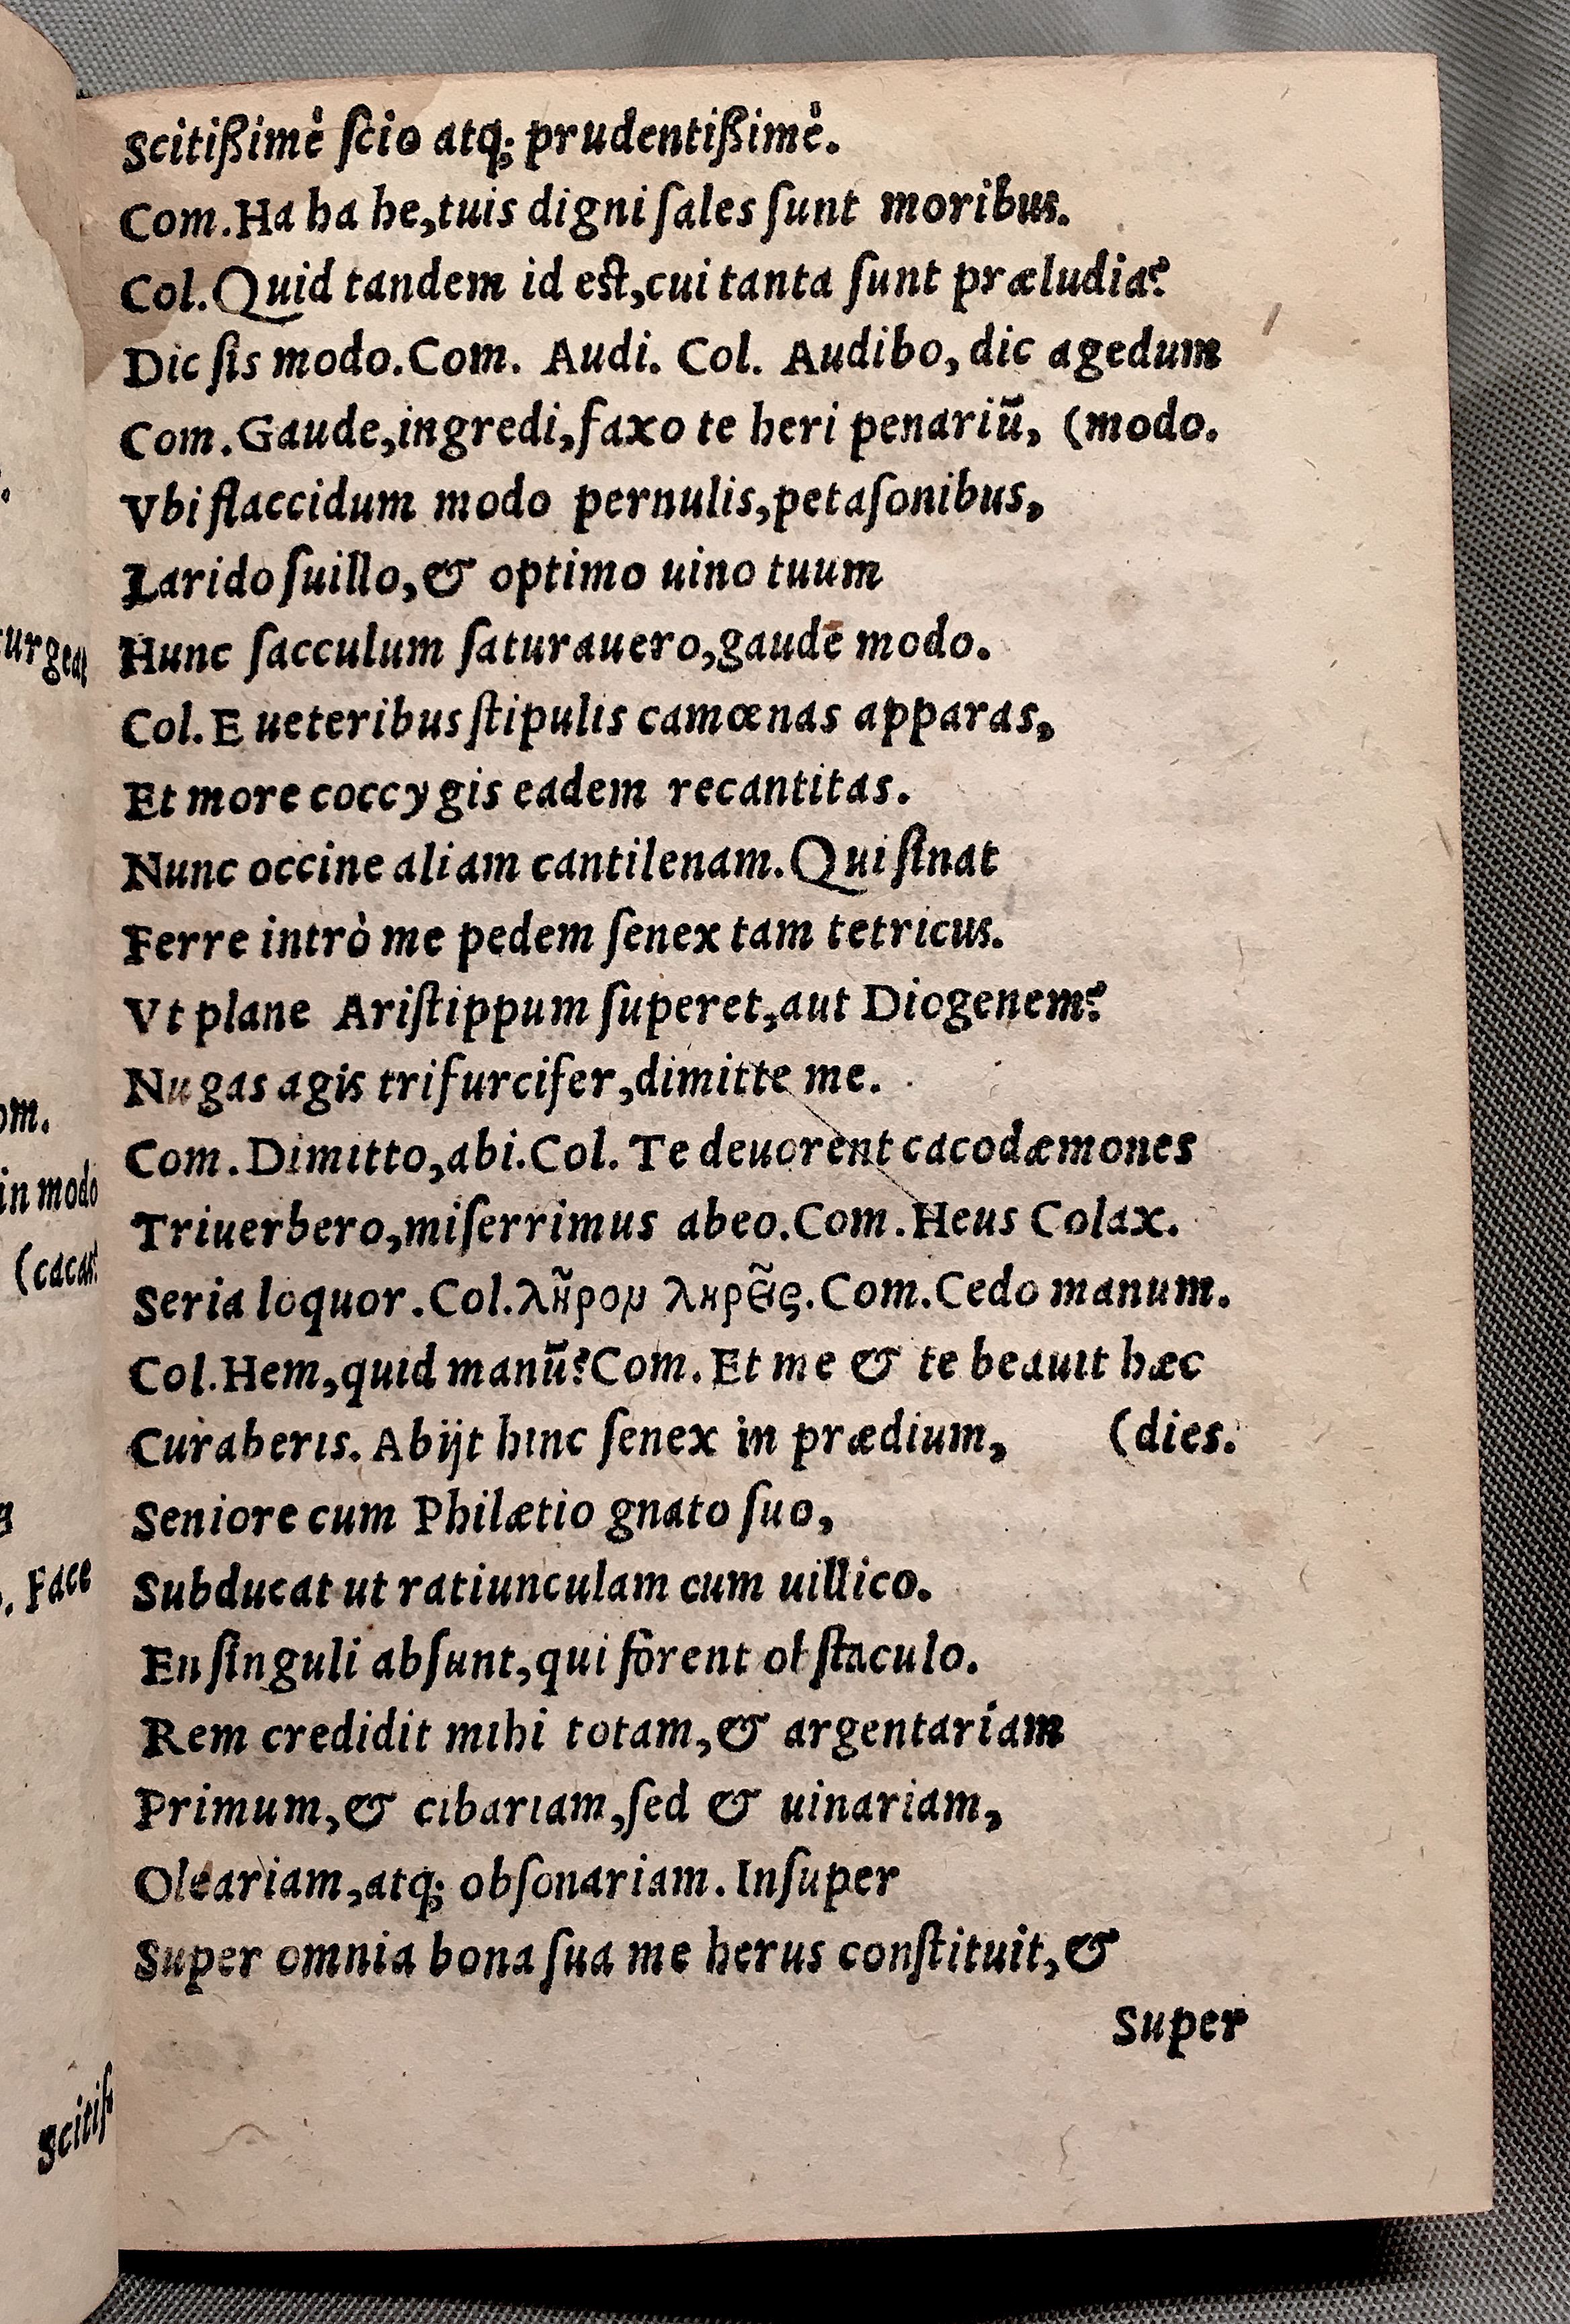 Scitißimè ſcio atq; prudentißimè.
Com. Ha ha he, tuis digni ſales ſunt moribus.
Col. Quid tandem id eſt, cui tanta ſunt præludia?
Dic ſis modo. Com. Audi. Col. Audibo, dic agedum
Com. Gaude, ingredi, faxo te heri penariũ, (modo.
Vbi flaccidum modo pernulis, petaſonibus,
Larido ſuillo, & optimo uino tuum
Hunc ſacculum ſaturauero, gaude modo.
Col. E ueteribus ſtipulis camœnas apparas,
Et more coccygis eadem recantitas.
Nunc occine aliam cantilenam. Qui ſinat
Ferre intrò me pedem ſenex tam tetricus.
Vt plane Ariſtippum ſuperet, aut Diogenem?
Nugas agis trifurcifer, dimitte me.
Com. Dimitto, abi. Col. Te deuorent cacodæmones
Triuerbero, miſerrimus abeo. Com. Heus Colax.
Seria loquor. Col. λῆρον ληρεῖς. Com. Cedo manum.
Col. Hem, quid manũ? Com. Et me & te beauit hæc
Curaberis. Abijt hinc ſenex in prædium, (dies.
Seniore cum Philætio gnato ſuo,
Subducat ut ratiunculam cum uillico.
En ſinguli abſunt, qui fôrent obſtaculo.
Rem credidit mihi totam, & argentariam
Primum, & cibariam, ſed & uinariam,
Oleariam, atq; obſonariam. Inſuper
Super omnia bona ſua me herus conſtituit, &
Super
urgeat
om.
in modo
(cacas?
. Face
Scitiſ